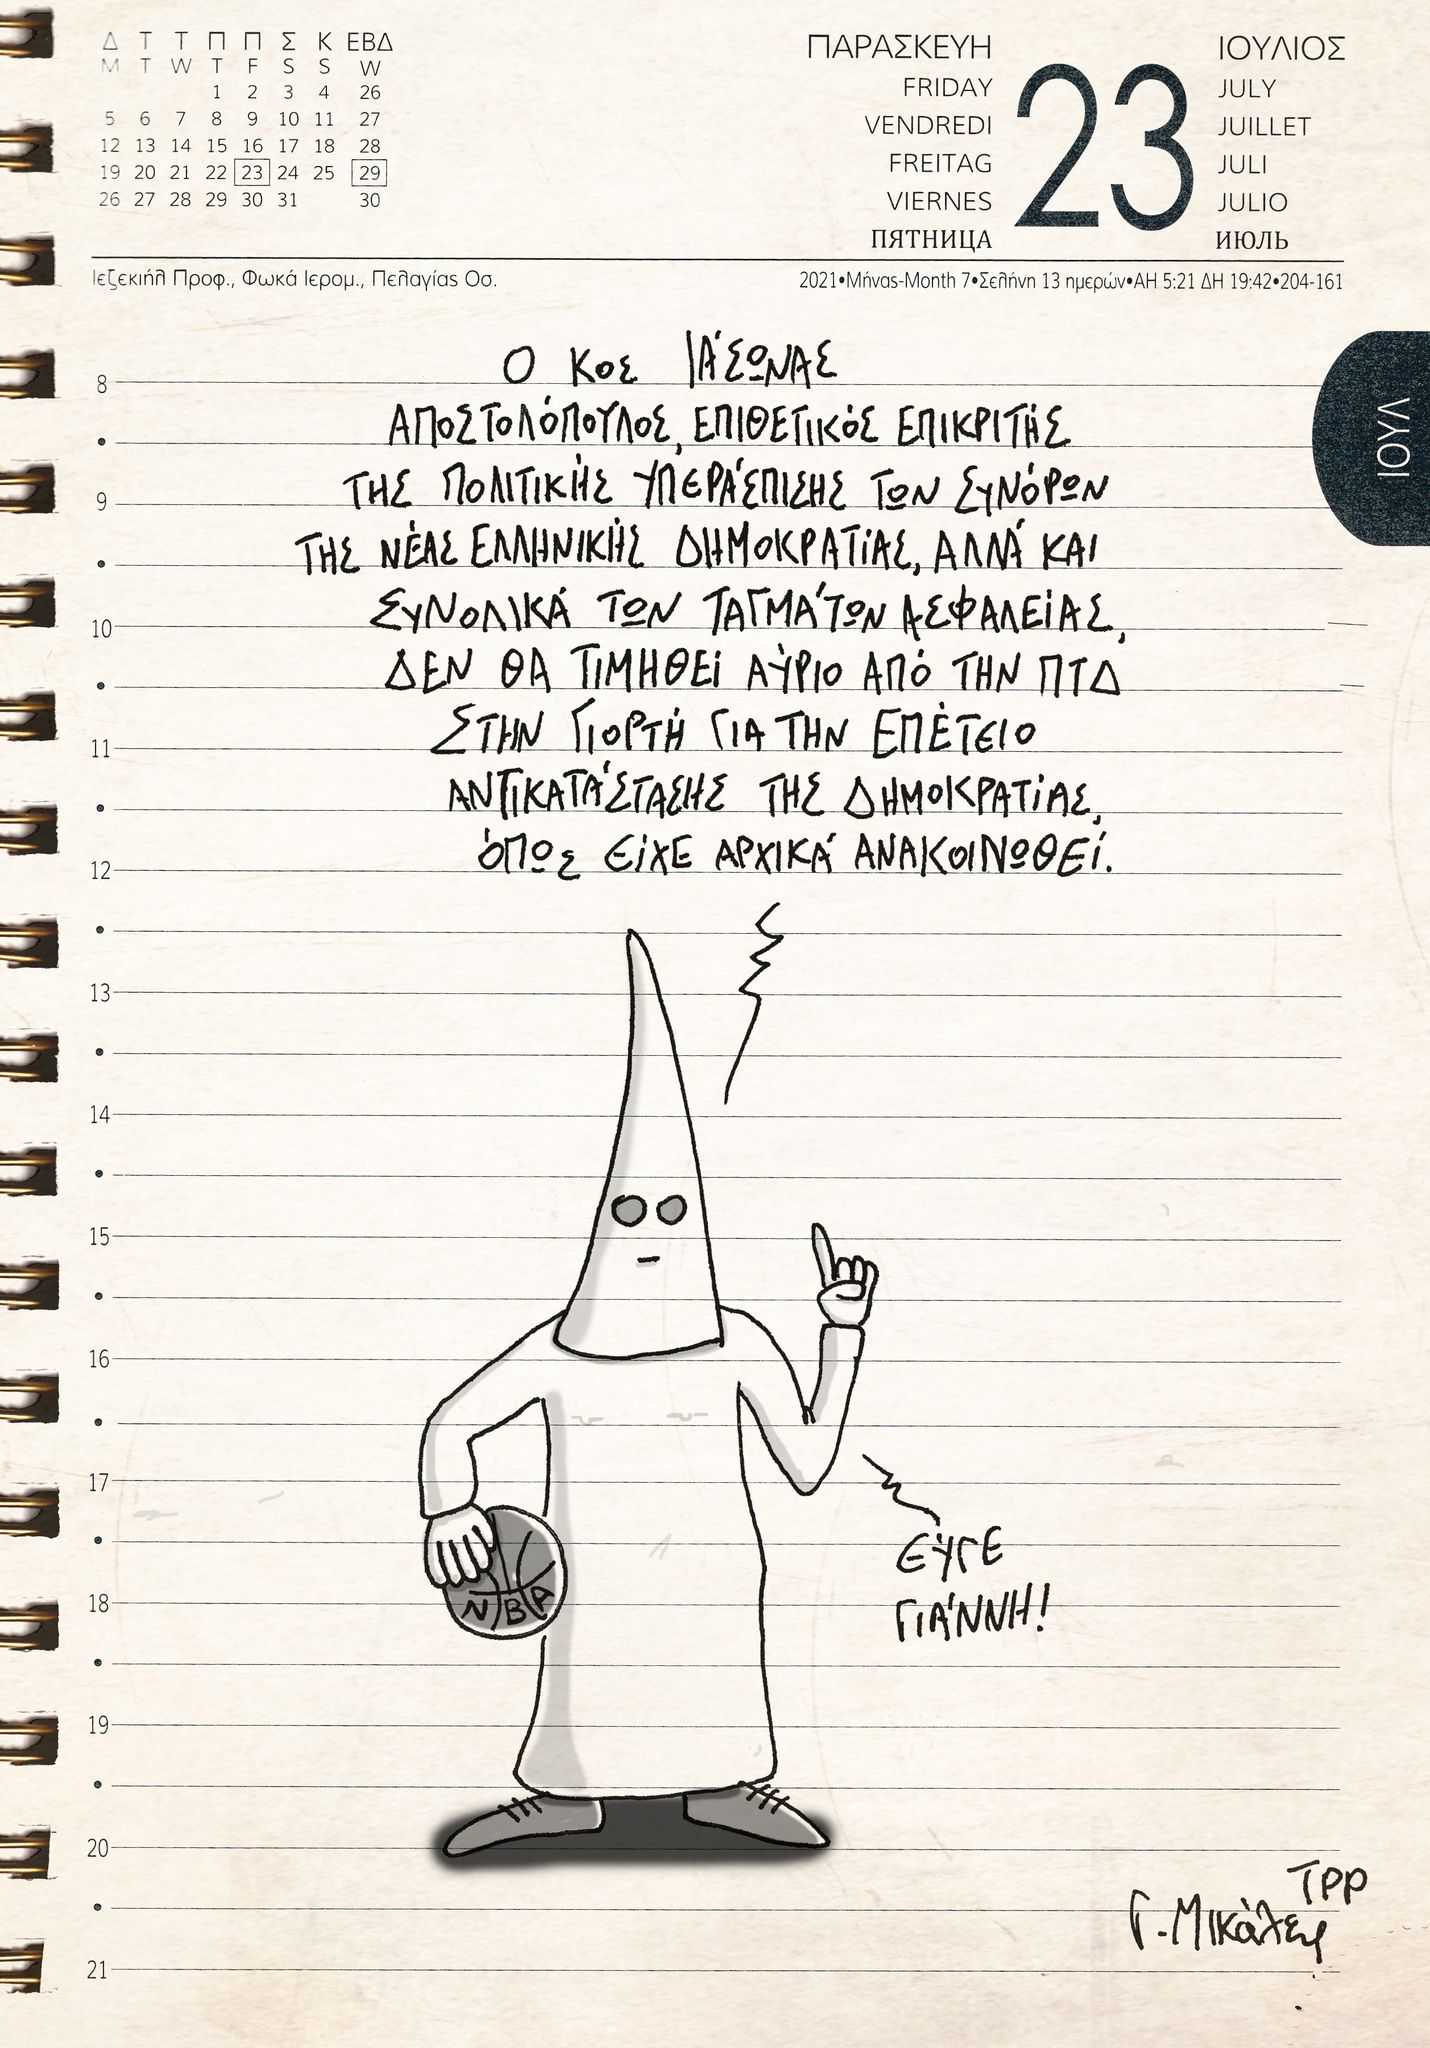 Δ Τ Τ Π Π Σ Κ ΕΒΔ
M T W T F S S W
1 2 3 4 26
5 6 7 8 9 10 11 27
12 13 14 15 16 17 18 28
19 20 21 22 23 24 25 29
26 27 28 29 30 31 30
ΠΑΡΑΣΚΕΥΗ
FRIDAY
VENDREDI
FREITAG
VIERNES
ПЯТНИЦА
23
ΙΟΥΛΙΟΣ
JULY
JUILLET
JULI
JULIO
ИЮЛЬ
Ιεζεκιήλ Προφ., Φωκά Ιερομ., Πελαγίας Οσ.
2021•Μήνας-Month 7•Σελήνη 13 ημερών•ΑΗ 5:21 ΔΗ 19:42•204-161
ΙΟΥΛ
Ο ΚΟΣ ΙΆΣΩΝΑΣ
ΑΠΟΣΤΟΛΌΠΟΥΛΟΣ, ΕΠΙΘΕΤΙΚΌΣ ΕΠΙΚΡΙΤΉΣ
ΤΗΣ ΠΟΛΙΤΙΚΉΣ ΥΠΕΡΆΣΠΙΣΗΣ ΤΩΝ ΣΥΝΌΡΩΝ
ΤΗΣ ΝΈΑΣ ΕΛΛΗΝΙΚΉΣ ΔΗΜΟΚΡΑΤΊΑΣ, ΑΛΛΆ ΚΑΙ
ΣΥΝΟΛΙΚΆ ΤΩΝ ΤΑΓΜΆΤΩΝ ΑΣΦΑΛΕΊΑΣ,
ΔΕΝ ΘΑ ΤΙΜΗΘΕΊ ΑΎΡΙΟ ΑΠΌ ΤΗΝ ΠΤΔ
ΣΤΗΝ ΓΙΟΡΤΉ ΓΙΑ ΤΗΝ ΕΠΈΤΕΙΟ
ΑΝΤΙΚΑΤΆΣΤΑΣΗΣ ΤΗΣ ΔΗΜΟΚΡΑΤΊΑΣ,
ΌΠΩΣ ΕΊΧΕ ΑΡΧΙΚΆ ΑΝΑΚΟΙΝΩΘΕΊ.
8
9
10
11
12
13
14
15
16
17
18
19
20
21
NBA
ΕΎΓΕ
ΓΙΆΝΝΗ!
TPP
Γ. Μικάλεφ